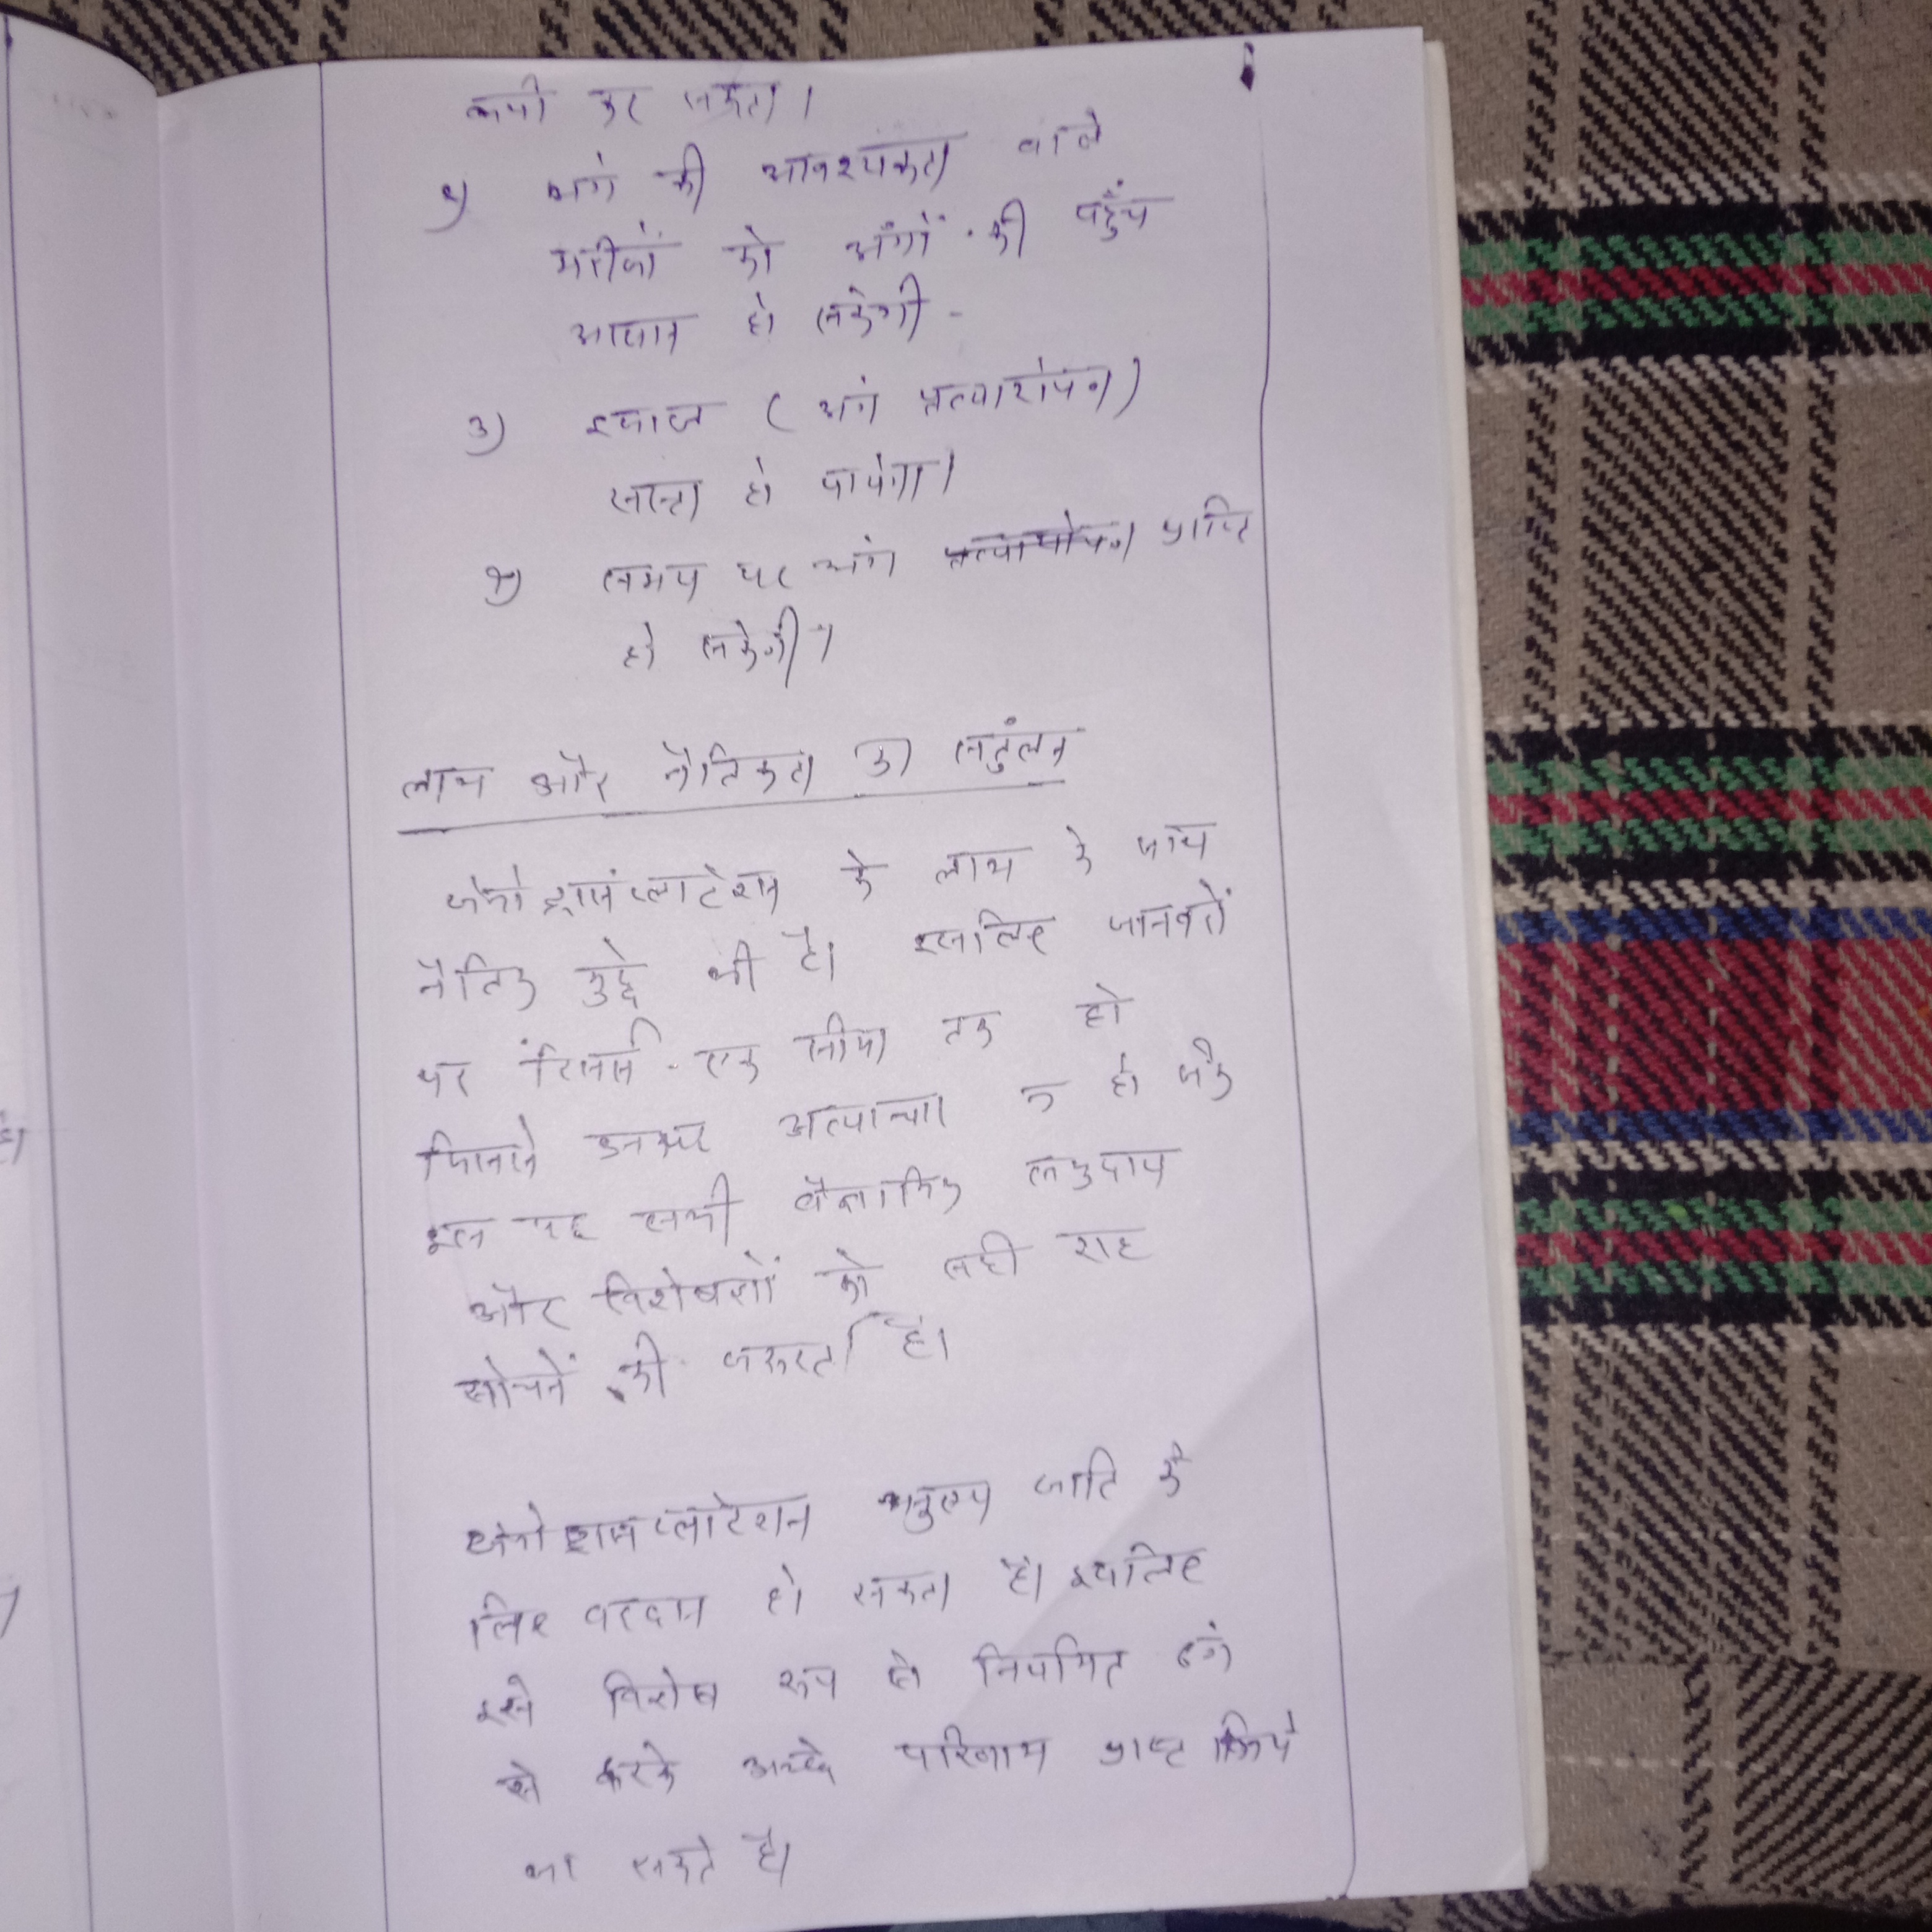 कमी कर सकता।
२) अंग की आवश्यकता वाले
मरीजों को अंगों की पहुँच
आसान हो सकेगी -
3) इलाज (अंग प्रत्यारोपण)
सस्ता हो पायेगा।
४) समय पर अंग प्रत्यारोपण प्राप्ति
हो सकेगी।
लाभ और नैतिकता का सतुंलन
जेनोट्रासंप्लाटेशन के लाभ के साथ
नैतिक मुद्दे भी है। इसलिए जानवरों
पर रिसर्च - एक सीमा तक हो
जिससे उनपर अत्याचार न हो सके
इस पर सभी वैज्ञानिक समुदाय
और विशेषज्ञों को सही राह
सोचनें की जरूरत है।
जेनोट्रासप्लाटेशन मनुष्य जाति के
लिए वरदान हो सकता है। इसलिए
इसे विशेष रूप से नियमित ढंग
से करके अच्छे परिणाम प्राप्त किये
जा सकते है।